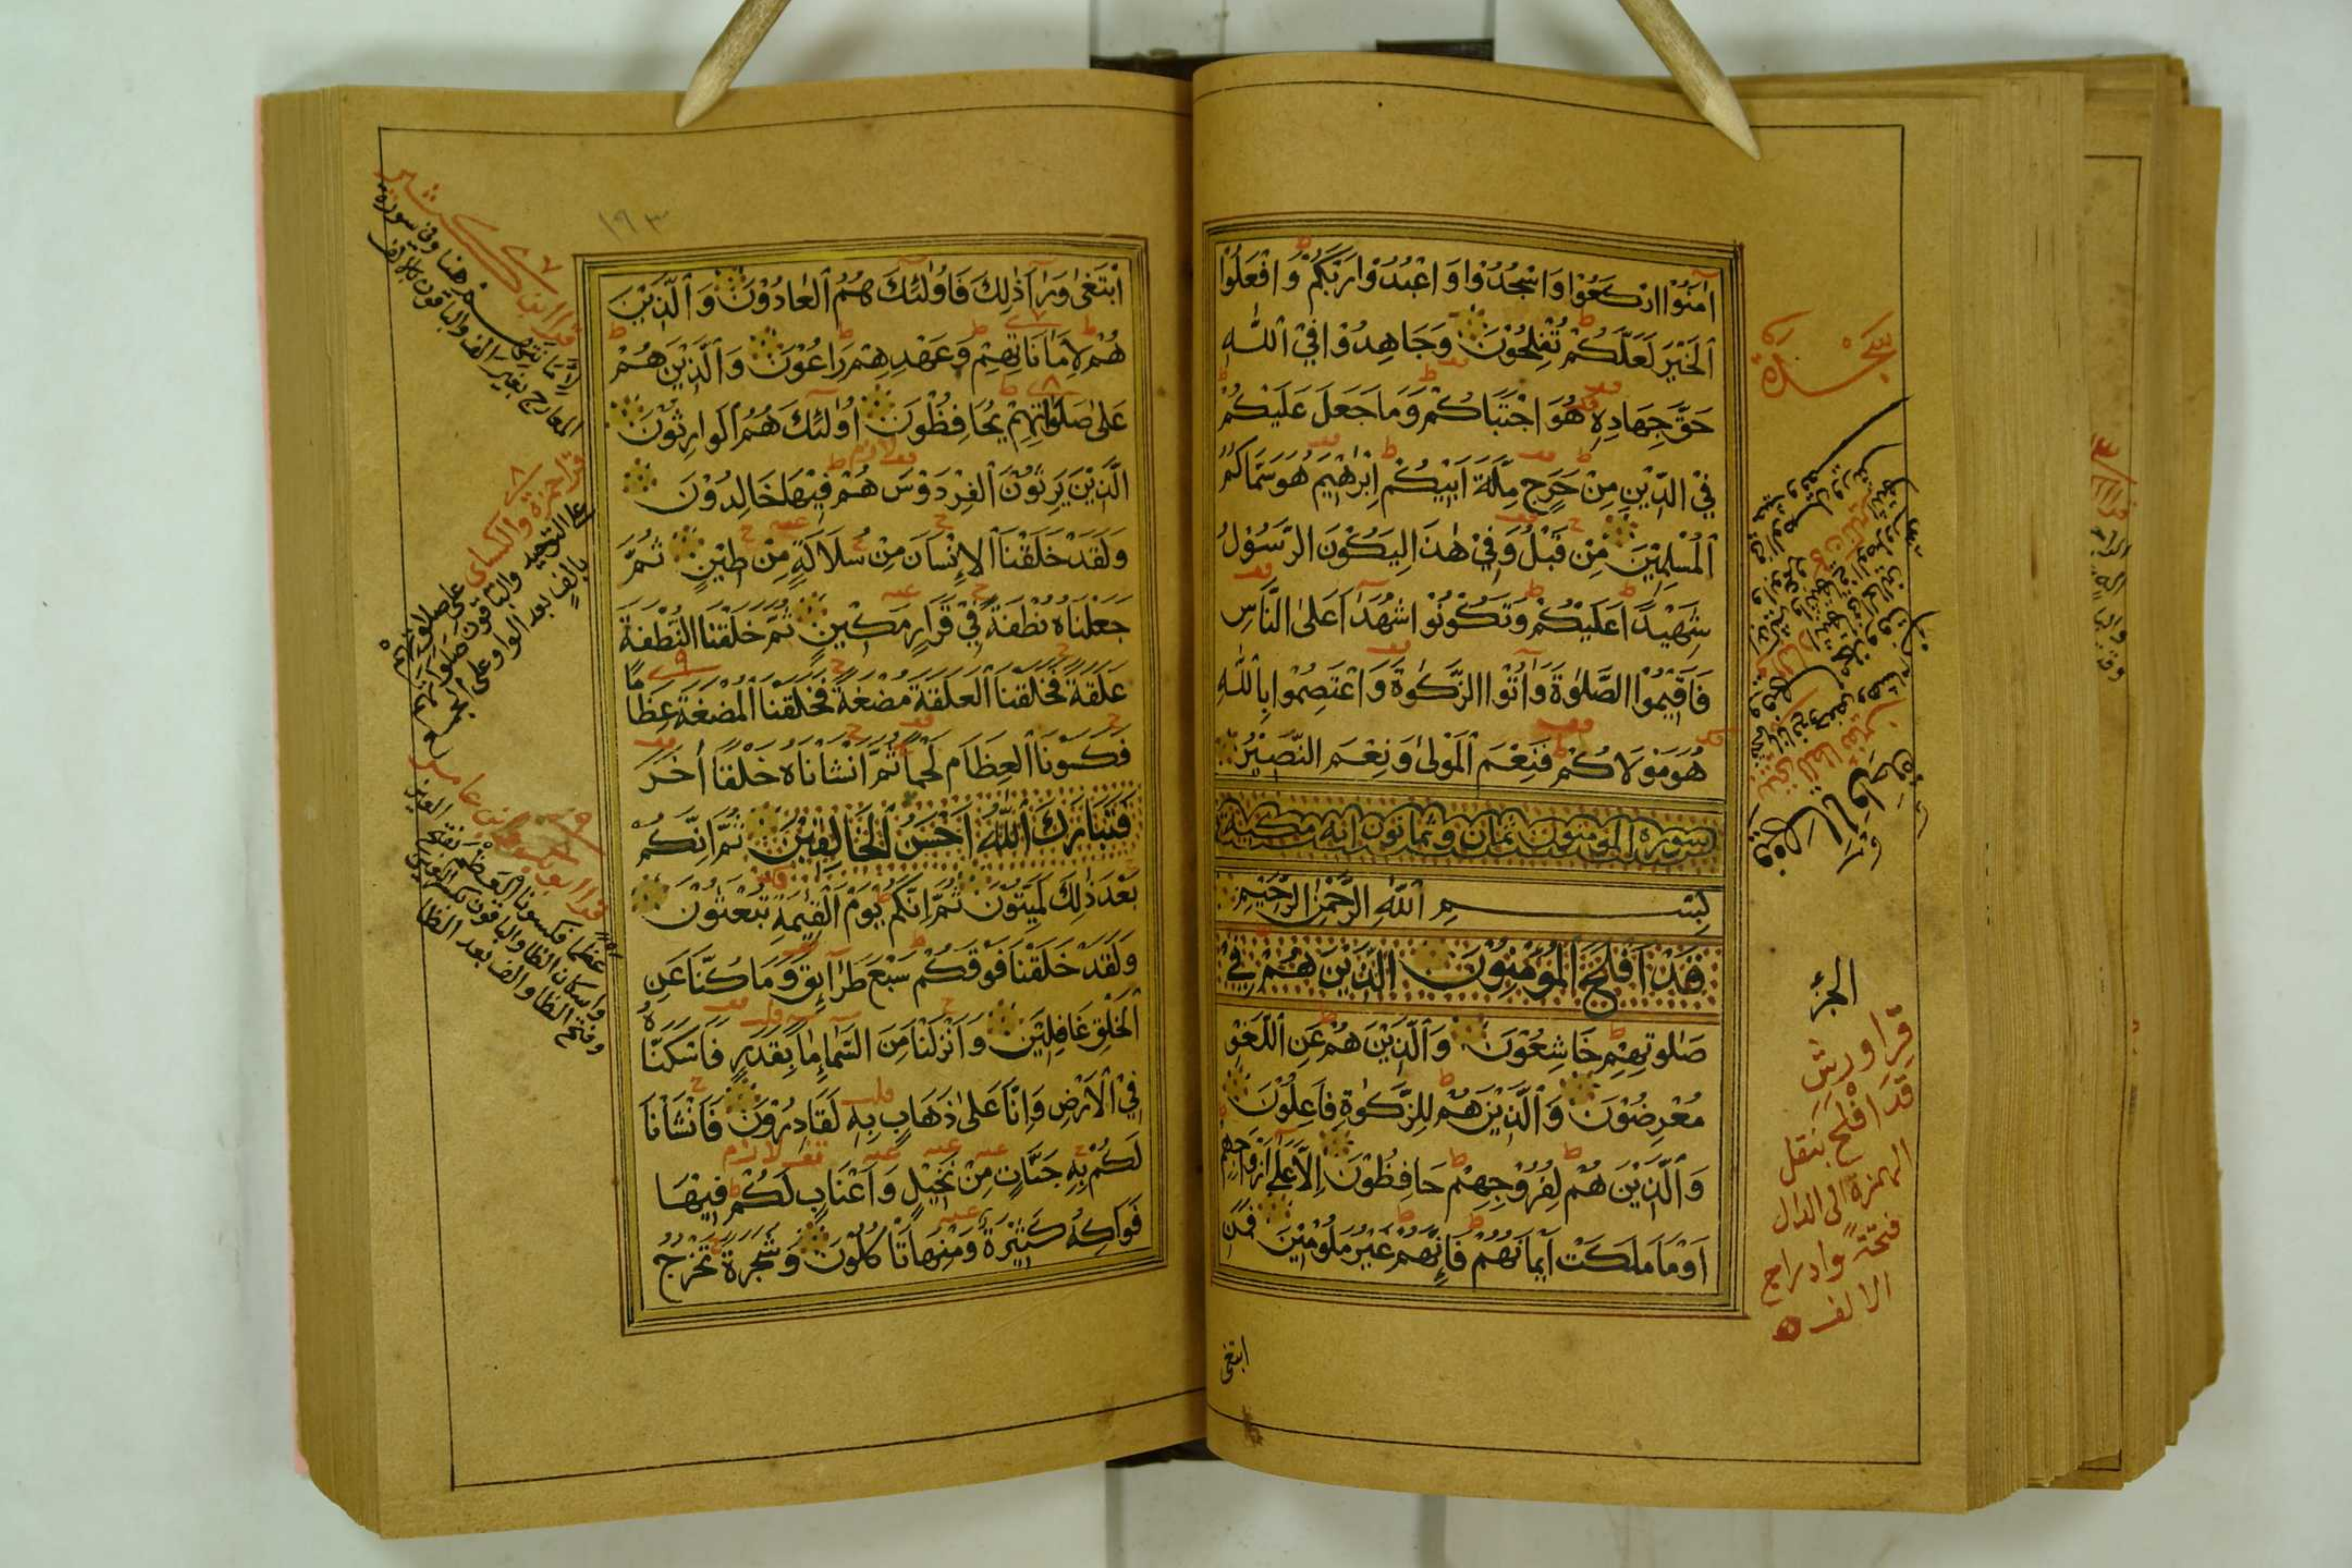 اٰمَنُوْا ارْكَعُوْا وَاسْجُدُوْا وَاعْبُدُوْا رَبَّكُمْ وَافْعَلُوْا
الْخَيْرَ لَعَلَّكُمْ تُفْلِحُوْنَ وَجَاهِدُوْا فِيْ اللّٰهِ
حَقَّ جِهَادِهٖ هُوَ اجْتَبَاكُمْ وَمَا جَعَلَ عَلَيْكُمْ
فِيْ الدِّيْنِ مِنْ حَرَجٍ مِلَّةَ اَبِيْكُمْ اِبْرٰهِيْمَ هُوَ سَمَّاكُمُ
الْمُسْلِمِيْنَ مِنْ قَبْلُ وَفِيْ هٰذَا لِيَكُوْنَ الرَّسُوْلُ
شَهِيْدًا عَلَيْكُمْ وَتَكُوْنُوْا شُهَدَآءَ عَلٰى النَّاسِ
فَاَقِيْمُوْا الصَّلٰوةَ وَاٰتُوا الزَّكٰوةَ وَاعْتَصِمُوْا بِاللّٰهِ
هُوَ مَوْلَاكُمْ فَنِعْمَ الْمَوْلٰى وَنِعْمَ النَّصِيْرُ
سورة المؤمنون ثمان وثمانون اية مكية
بِسْمِ اللّٰهِ الرَّحْمٰنِ الرَّحِيْمِ
قَدْ اَفْلَحَ الْمُؤْمِنُوْنَ الَّذِيْنَ هُمْ فِيْ
صَلٰوتِهِمْ خَاشِعُوْنَ وَالَّذِيْنَ هُمْ عَنِ اللَّغْوِ
مُعْرِضُوْنَ وَالَّذِيْنَ هُمْ لِلزَّكٰوةِ فَاعِلُوْنَ
وَالَّذِيْنَ هُمْ لِفُرُوْجِهِمْ حَافِظُوْنَ اِلَّا عَلٰى اَزْوَاجِهِمْ
اَوْ مَا مَلَكَتْ اَيْمَانُهُمْ فَاِنَّهُمْ غَيْرُ مَلُوْمِيْنَ فَمَنِ
ابتغى
سَجْدَة
الجزء
قرا ورش
قَدَ افْلَحَ بنقل
الهمزة الى الدال
فتحةً وادراج
الالف
١٩٣
ابْتَغٰى وَرَآءَ ذٰلِكَ فَاُولٰئِكَ هُمُ الْعَادُوْنَ وَالَّذِيْنَ
هُمْ لِاَمَانَاتِهِمْ وَعَهْدِهِمْ رَاعُوْنَ وَالَّذِيْنَ هُمْ
عَلٰى صَلَوَاتِهِمْ يُحَافِظُوْنَ اُولٰئِكَ هُمُ الْوَارِثُوْنَ
الَّذِيْنَ يَرِثُوْنَ الْفِرْدَوْسَ هُمْ فِيْهَا خَالِدُوْنَ
وَلَقَدْ خَلَقْنَا الْاِنْسَانَ مِنْ سُلَالَةٍ مِنْ طِيْنٍ ثُمَّ
جَعَلْنَاهُ نُطْفَةً فِيْ قَرَارٍ مَكِيْنٍ ثُمَّ خَلَقْنَا النُّطْفَةَ
عَلَقَةً فَخَلَقْنَا الْعَلَقَةَ مُضْغَةً فَخَلَقْنَا الْمُضْغَةَ عِظَامًا
فَكَسَوْنَا الْعِظَامَ لَحْمًا ثُمَّ اَنْشَاْنَاهُ خَلْقًا اٰخَرَ
فَتَبَارَكَ اللّٰهُ اَحْسَنُ الْخَالِقِيْنَ ثُمَّ اِنَّكُمْ
بَعْدَ ذٰلِكَ لَمَيِّتُوْنَ ثُمَّ اِنَّكُمْ يَوْمَ الْقِيٰمَةِ تُبْعَثُوْنَ
وَلَقَدْ خَلَقْنَا فَوْقَكُمْ سَبْعَ طَرَآئِقَ وَمَا كُنَّا عَنِ
الْخَلْقِ غَافِلِيْنَ وَاَنْزَلْنَا مِنَ السَّمَآءِ مَآءً بِقَدَرٍ فَاَسْكَنَّاهُ
فِيْ الْاَرْضِ وَاِنَّا عَلٰى ذَهَابٍ بِهٖ لَقَادِرُوْنَ فَاَنْشَاْنَا
لَكُمْ بِهٖ جَنَّاتٍ مِنْ نَخِيْلٍ وَاَعْنَابٍ لَكُمْ فِيْهَا
فَوَاكِهُ كَثِيْرَةٌ وَمِنْهَا تَاْكُلُوْنَ وَشَجَرَةً تَخْرُجُ
٧ قرا ابن كثير
لِاَمَانتِهِم هنا وفي سورة
المعارج بغير الف والباقون بالالف
٨ قرا حمزة والكساى على صلوتهم
على التوحيد والباقون صلواتهم
بالف بعد الواو على الجمع
٩ قرا ابو بكر وابن عامر
عَظْمًا فكسونا الْعَظْمَ بفتح العين
واسكان الظا والباقون بكسر العين
وفتح الظا والف بعد الظا